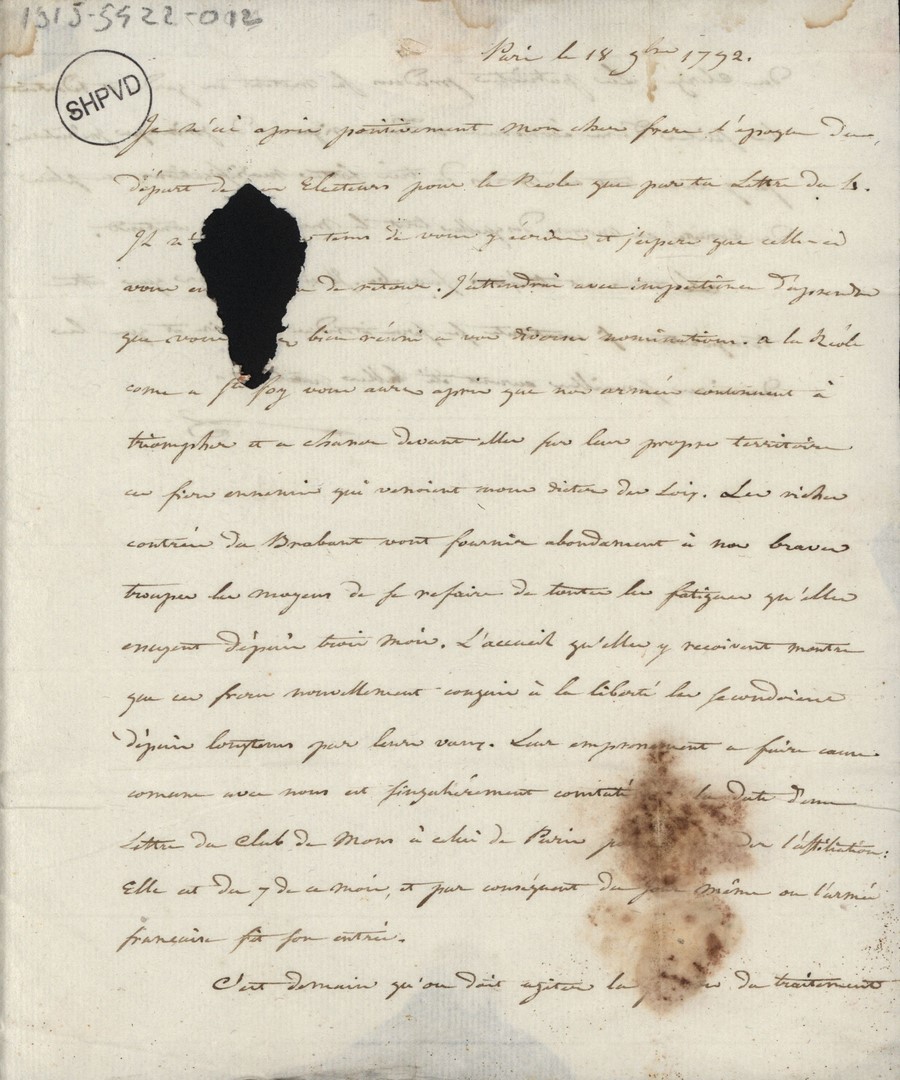 1915-5922-012
SHPVD
Paris le 18 9bre 1792.
Je n'ai apris positivement mon cher frere l'époque du
départ de Electeurs pour la Reole que par ta Lettre du
Il tems de vous y écrire et j'espere que celle ci
vous de retour. J'attendrai avec impatience d'aprendre
que vous bien réussi a vos diverses nominations. a la Réole
come a Ste foy vous aurez apris que nos armées continuent à
triompher et a chasser devant elles sur leur propre territoire
ces fiers ennemis qui venoient nous dicter des Loix. Les riches
contrées du Brabant vont fournir abondament à nos braves
troupes les moyens de se refaire de toutes les fatigues qu'elles
essuyent dépuis trois mois. L'accueil qu'elles y recoivent montre
que ces freres nouvellement conquis à la liberté les secondoient
dépuis longtems par leurs vœux. Leur empressement a faire cause
comune avec nous est singulièrement constaté la date d'une
Lettre du Club de Mons à celui de Paris l'affiliation:
Elle est du 7 de ce mois, et par conséquent du jour même ou l'armée
francaise fit son entrée.
C'est demain qu'on doit agiter la du traitement